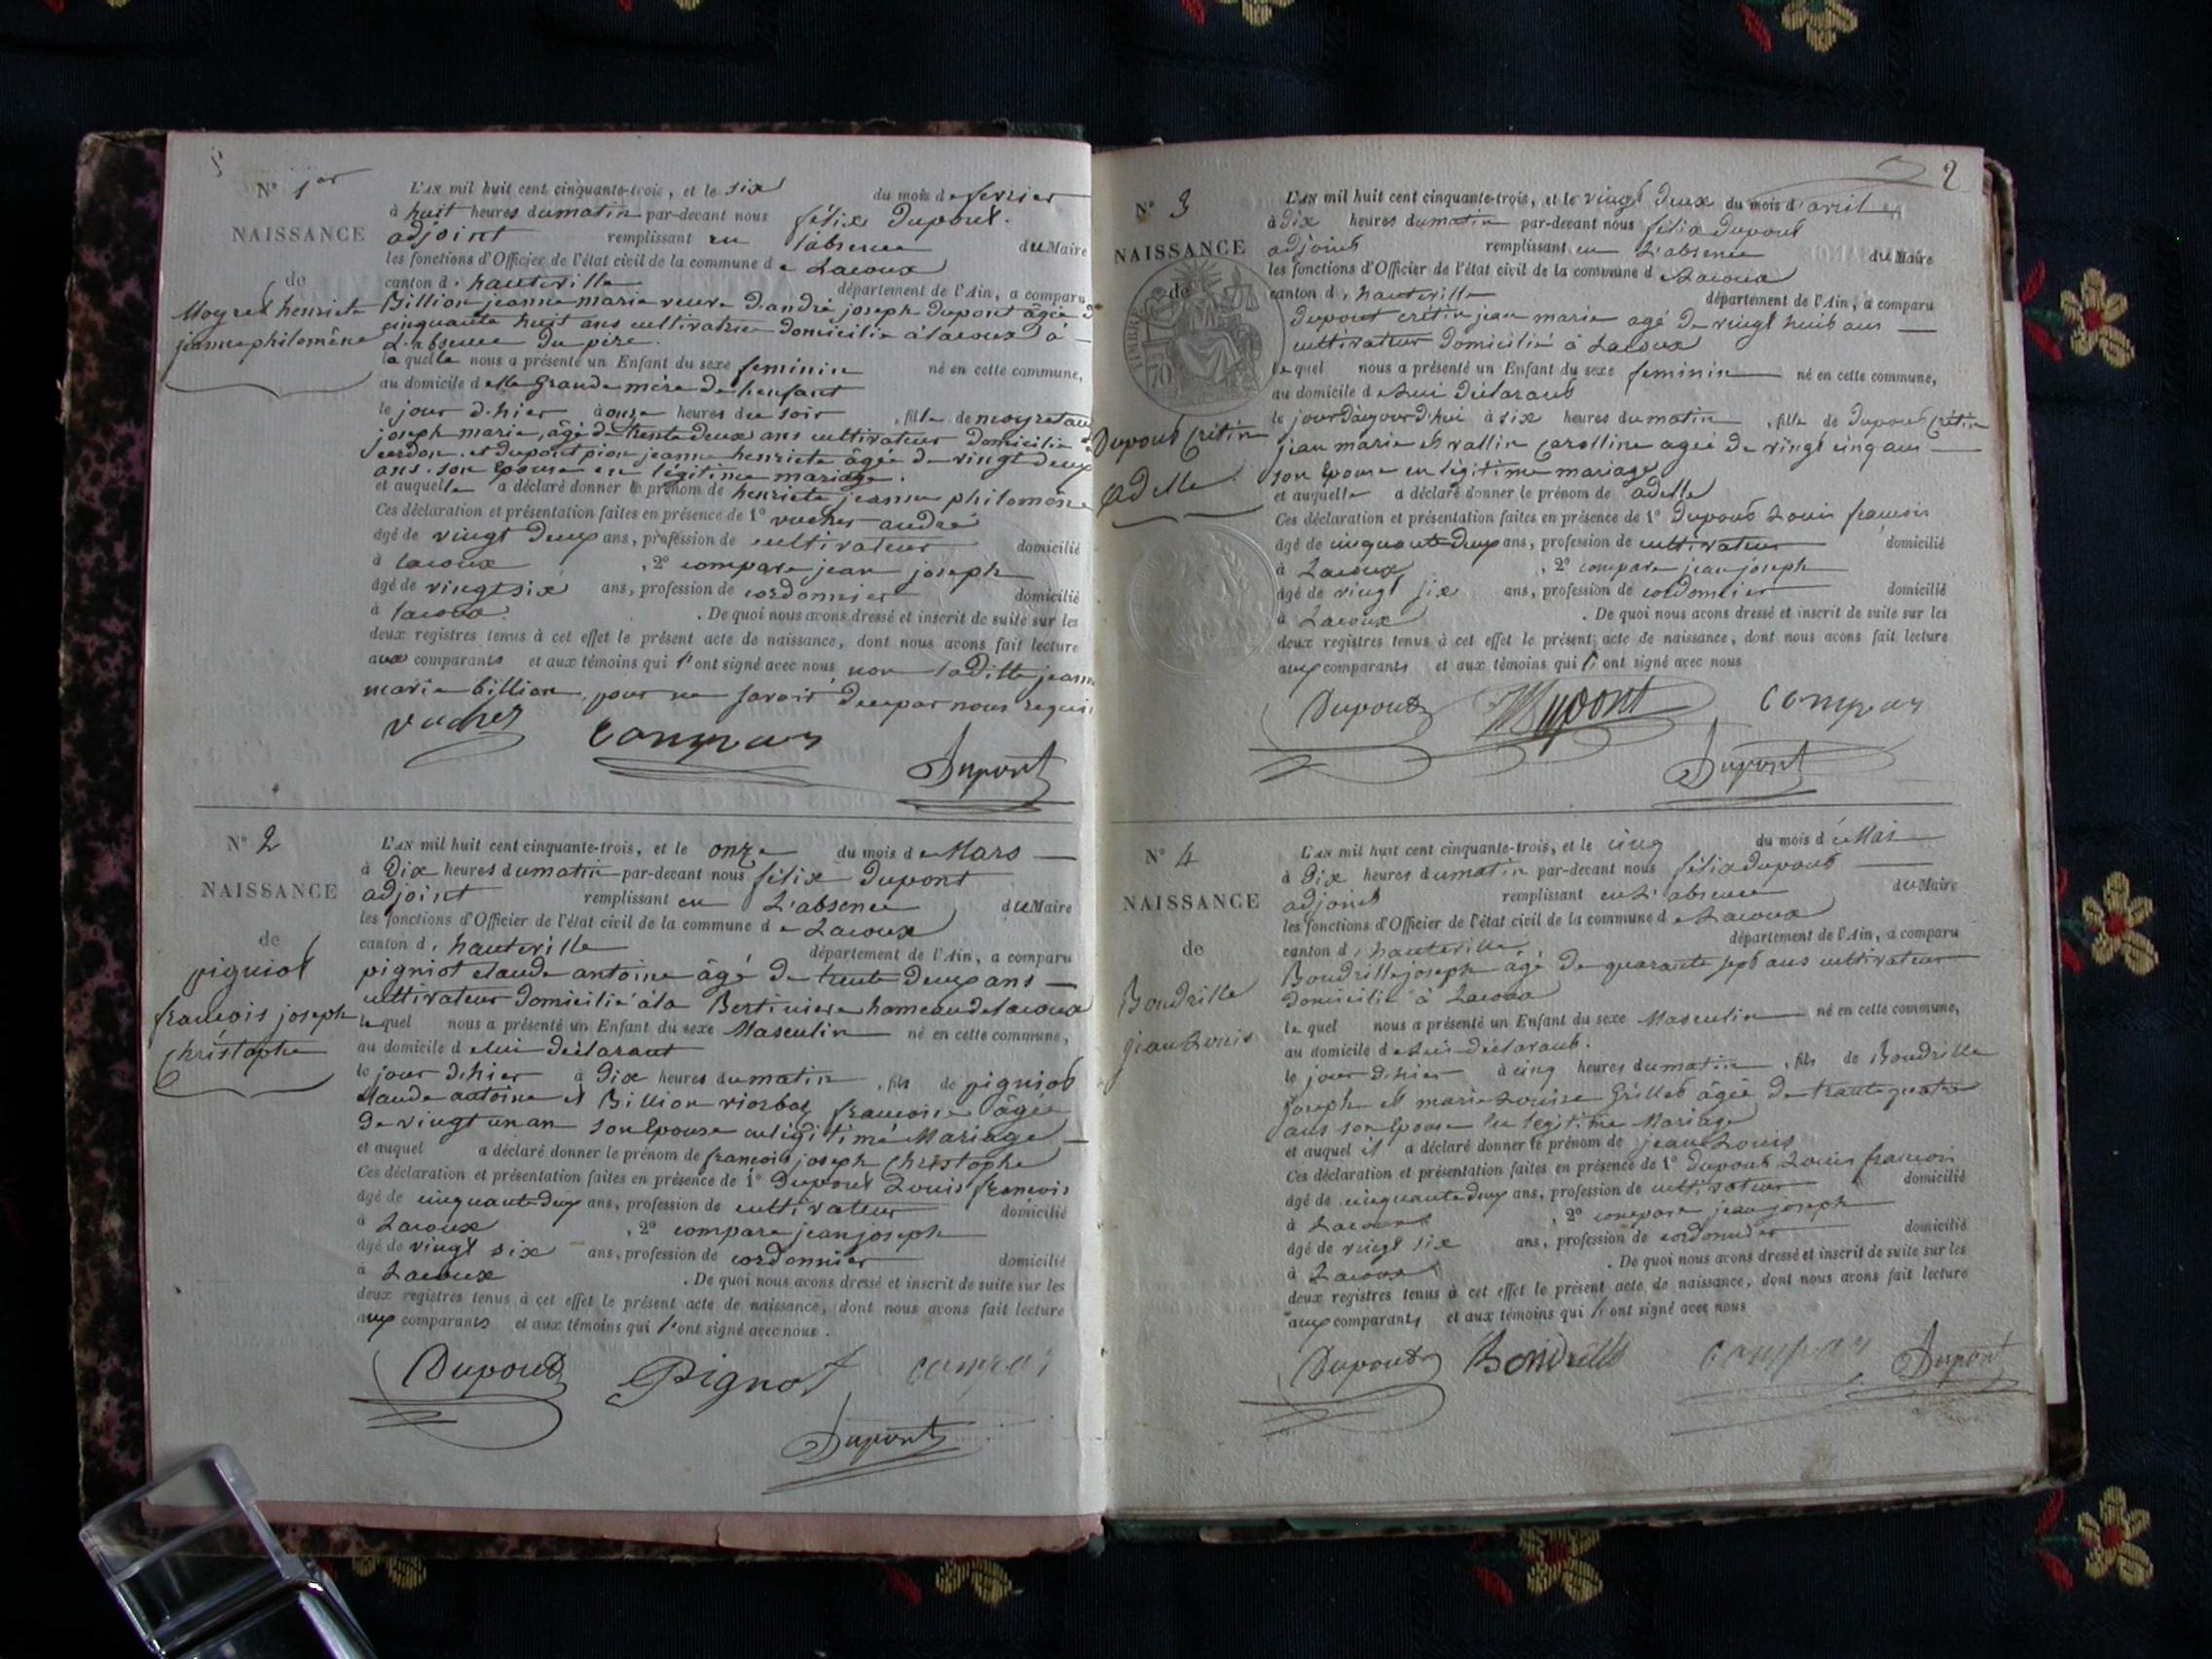 N° 1er
NAISSANCE
de
Moyret henriete
jeanne philomène
L'AN mil huit cent cinquante-trois, et le six du mois de fevrier
à huit heures du matin par-devant nous félix Dupont.
adjoint remplissant en l'absence du Maire
les fonctions d'Officier de l'état civil de la commune de Lacoux
canton d'hauteville département de l'Ain, a comparu
Billion jeanne marie veuve D'andré joseph Dupont âgée de
cinquante huit ans cultivatrice domicilié à lacoux à
L'absence du père.
laquelle nous a présenté un Enfant du sexe feminin né en cette commune,
au domicile de la Grande mère de l'enfant
le jour d'hier à onze heures du soir, fille de moyret
joseph marie, âgé de trente deux ans cultivateur domicilié
cerdon, et dupont pion jeanne henriete âgée de vingt deux
ans. son Epouse en légitime mariage.
et auquelle a déclaré donner le prénom de henriete jeanne philomène
Ces déclaration et présentation faites en présence de 1° vucher andré
âgé de vingt Deux ans, profession de cultivateur domicilié
à lacoux, 2° compare jean joseph
âgé de vingt six ans, profession de cordonnier domicilié
à lacoux. De quoi nous avons dressé et inscrit de suite sur les
deux registres tenus à cet effet le présent acte de naissance, dont nous avons fait lecture
aux comparants et aux témoins qui l'ont signé avec nous non laditte jeanne
marie billion, pour ne savoir Deux par nous requis
vucher
Dupont
N° 2
NAISSANCE
de
pigniot
francois joseph
christophe
L'AN mil huit cent cinquante-trois, et le onze du mois de Mars
à Dix heures du matin par-devant nous félix Dupont
adjoint remplissant en L'absence du Maire
les fonctions d'Officier de l'état civil de la commune de Lacoux
canton d'hauteville département de l'Ain, a comparu
pigniot claude antoine âgé de trente Deux ans
cultivateur domicilié à la Bertiniere hameau de lacoux
lequel nous a présenté un Enfant du sexe Masculin né en cette commune,
au domicile de lui déclarant
le jour d'hier à Dix heures du matin, fils de pigniot
claude antoine et Billion francoise âgée
de vingt un an son Epouse en légitime Mariage
et auquel a déclaré donner le prénom de francois joseph Christophe
Ces déclaration et présentation faites en présence de 1° Dupont Louis francois
âgé de cinquante deux ans, profession de cultivateur domicilié
à Lacoux, 2° compare jean joseph
âgé de vingt six ans, profession de cordonnier domicilié
à Lacoux. De quoi nous avons dressé et inscrit de suite sur les
deux registres tenus à cet effet le présent acte de naissance, dont nous avons fait lecture
aux comparants et aux témoins qui l'ont signé avec nous.
Dupont Pignot
Dupont
2
N° 3
NAISSANCE
de
TIMBRE
70
Dupont Crétin
adelle
L'AN mil huit cent cinquante-trois, et le vingt deux du mois d'avril
à dix heures du matin par-devant nous félix dupont
adjoint remplissant en L'absence du Maire
les fonctions d'Officier de l'état civil de la commune de Lacoux
canton d'hauteville département de l'Ain, a comparu
dupont crétin jean marie agé De vingt huit ans
cultivateur domicilié à Lacoux
lequel nous a présenté un Enfant du sexe feminin né en cette commune,
au domicile de Lui déclarant
le jour d'aujourd'hui à six heures du matin, fille de dupont Crétin
jean marie et vallin Carolline agée de vingt cinq ans
son Epouse en légitime mariage
et auquelle a déclaré donner le prénom de adelle
Ces déclaration et présentation faites en présence de 1° Dupont Louis francois
âgé de cinquante deux ans, profession de cultivateur domicilié
à Lacoux, 2° compare jean joseph
âgé de vingt six ans, profession de cordonnier domicilié
à Lacoux. De quoi nous avons dressé et inscrit de suite sur les
deux registres tenus à cet effet le présent acte de naissance, dont nous avons fait lecture
aux comparants et aux témoins qui l'ont signé avec nous
Dupont Dupont
Dupont
N° 4
NAISSANCE
de
Bondrille
jean Louis
L'AN mil huit cent cinquante-trois, et le cinq du mois de Mai
à Dix heures du matin par-devant nous félix dupont
adjoint remplissant en L'absence du Maire
les fonctions d'Officier de l'état civil de la commune de Lacoux
canton d'hauteville département de l'Ain, a comparu
Bondrille joseph âgé de quarante sept ans cultivateur
domicilié à Lacoux
lequel nous a présenté un Enfant du sexe Masculin né en cette commune,
au domicile de Lui déclarant.
le jour d'hier à cinq heures du matin, fils de Bondrille
joseph et marie Louise Grillet âgée de trante quatre
ans son Epouse en légitime Mariage
et auquel il a déclaré donner le prénom de jean Louis
Ces déclaration et présentation faites en présence de 1° Dupont Louis francois
âgé de cinquante deux ans, profession de cultivateur domicilié
à Lacoux, 2° compare jean joseph
âgé de vingt six ans, profession de cordonnier domicilié
à Lacoux. De quoi nous avons dressé et inscrit de suite sur les
deux registres tenus à cet effet le présent acte de naissance, dont nous avons fait lecture
aux comparants et aux témoins qui l'ont signé avec nous
Dupont Bondrille Dupont